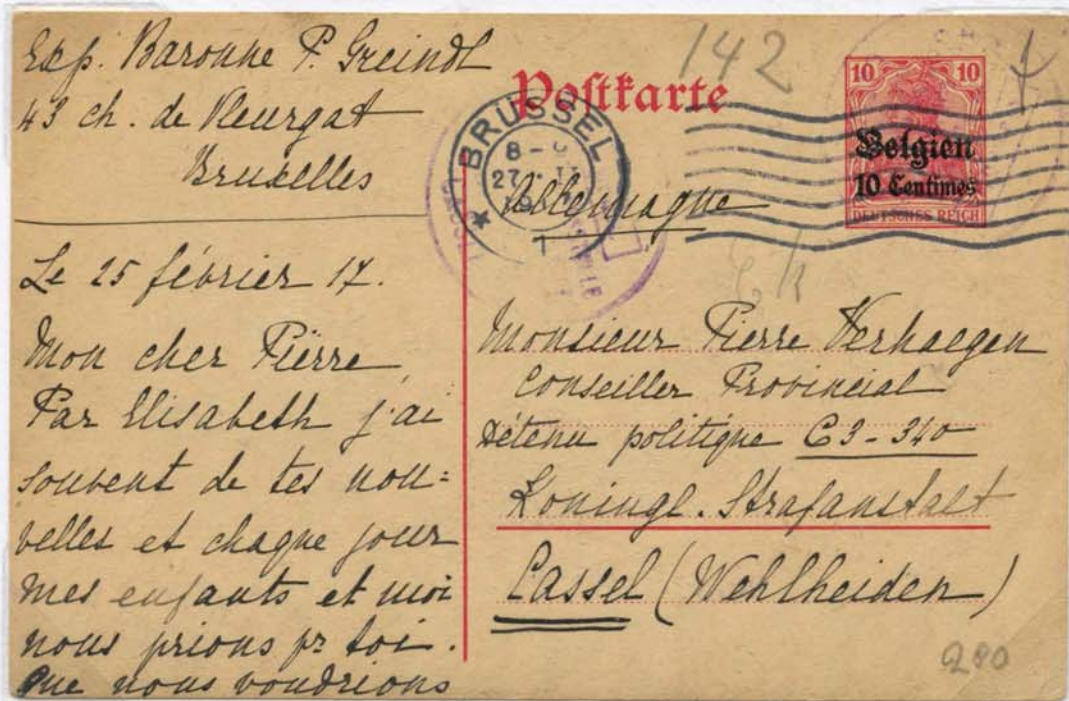 Exp. Baronne P. Greindl
43 ch. de Vleurgat
Bruxelles
Le 25 février 17.
Mon cher Pierre,
Par Elisabeth j'ai
souvent de tes nou=
velles et chaque jour
mes enfants et moi
nous prions pr toi.
Que nous voudrions
142
Postkarte
BRUSSEL
8 -
27
1
10 10
Belgien
10 Centimes
DEUTSCHES REICH
Allemagne
Monsieur Pierre Verhaegen
Conseiller Provincial
Détenu politique C3-340
Koningl. Strafanstalt
Cassel (Wehlheiden)
280